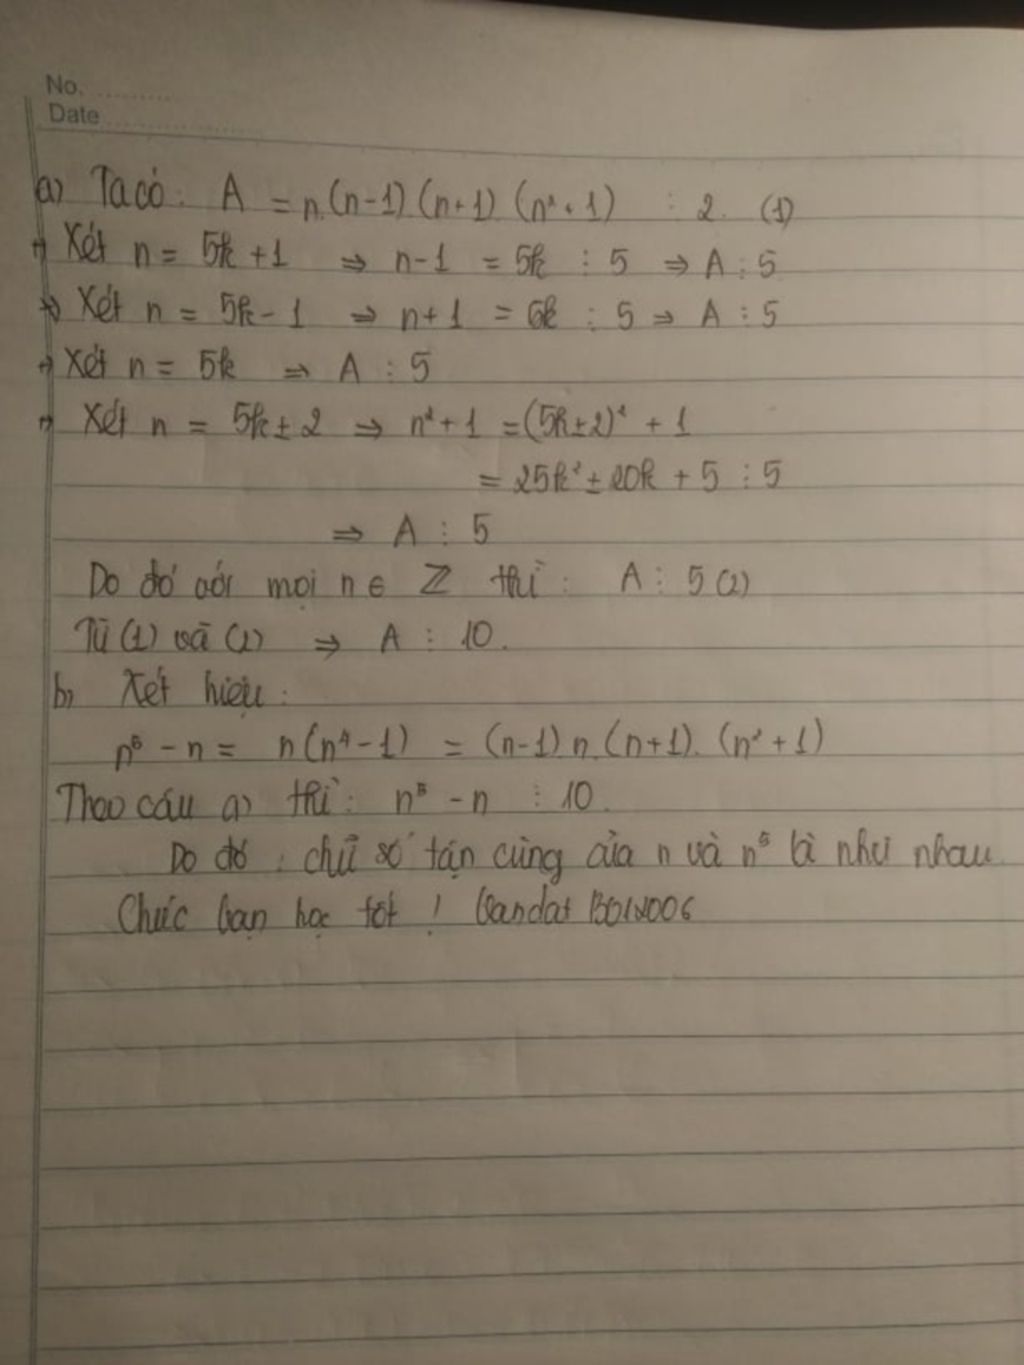 No. ..........
Date ....................
a) Ta có: A = n.(n-1)(n+1)(n²+1) ⋮ 2. (1)
+) Xét n = 5k+1 ⇒ n-1 = 5k ⋮ 5 ⇒ A ⋮ 5
+) Xét n = 5k-1 ⇒ n+1 = 5k ⋮ 5 ⇒ A ⋮ 5
+) Xét n = 5k ⇒ A ⋮ 5
+) Xét n = 5k±2 ⇒ n²+1 = (5k±2)² + 1
= 25k² ± 20k + 5 ⋮ 5
⇒ A ⋮ 5
Do đó với mọi n ∈ Z thì: A ⋮ 5 (2)
Từ (1) và (2) ⇒ A ⋮ 10.
b) Xét hiệu:
n⁵ - n = n(n⁴-1) = (n-1).n.(n+1).(n²+1)
Theo câu a) thì: n⁵ - n ⋮ 10.
Do đó: chữ số tận cùng của n và n⁵ là như nhau.
Chúc bạn học tốt!